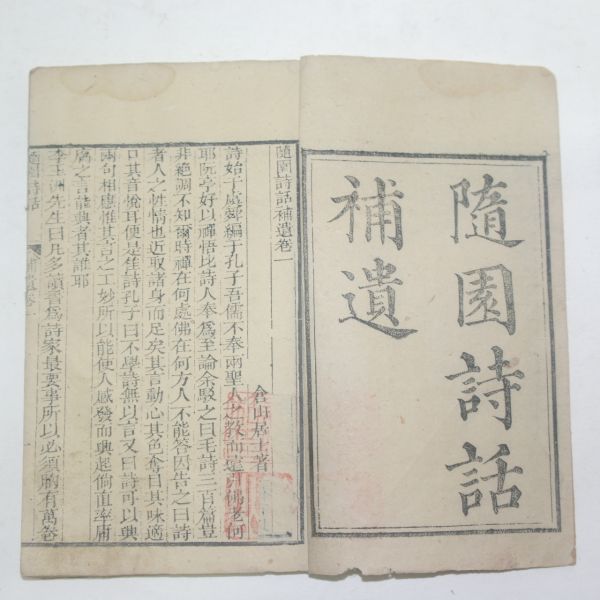 隨園詩話
補遺
隨園詩話補遺卷一
倉山居士著
詩始于虞舜編于孔子吾儒不奉兩聖人之教而遠引佛老何
耶阮亭好以禪悟比詩人奉為至論余駁之曰毛詩三百篇豈
非絕調不知爾時禪在何處佛在何方人不能答因告之曰詩
者人之性情也近取諸身而足矣其言動心其色奪目其味適
口其音悅耳便是佳詩孔子曰不學詩無以言又曰詩可以興
兩句相應惟其言之工妙所以能使人感發而興起倘直率庸
腐之言能興者其誰耶
李玉洲先生曰凡多讀書為詩家最要事所以必須胸有萬卷
隨園詩話
補遺卷一